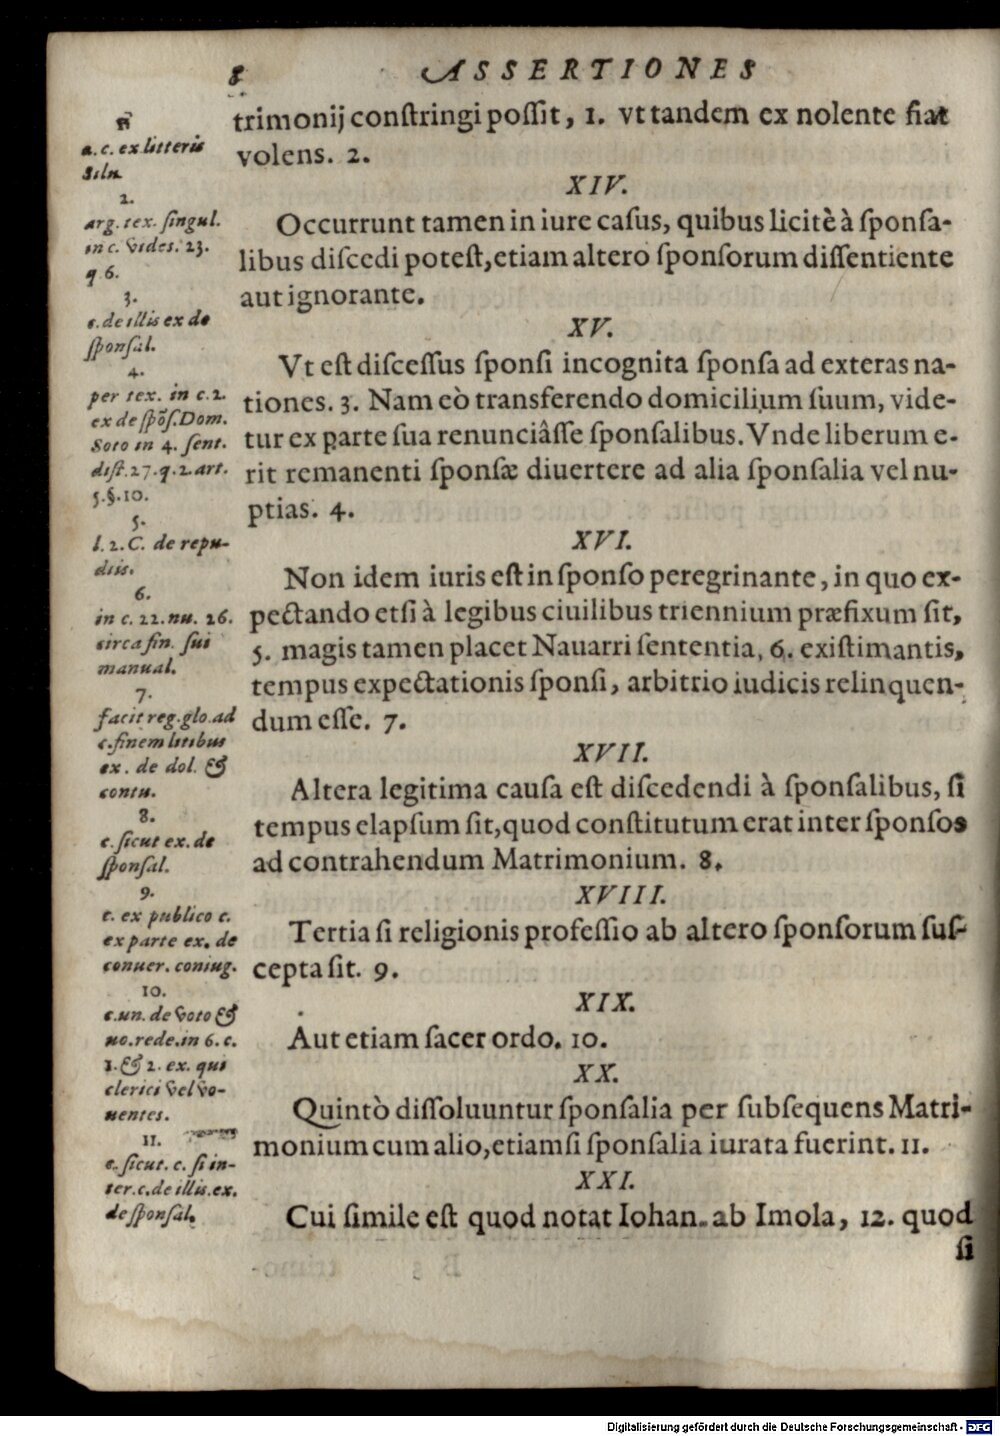 8 ASSERTIONES
trimonij conſtringi poſſit, 1. vt tandem ex nolente fiat
volens. 2.
XIV.
Occurrunt tamen in iure caſus, quibus licitè à ſponſa-
libus diſcedi poteſt, etiam altero ſponſorum diſſentiente
aut ignorante.
XV.
Vt eſt diſceſſus ſponſi incognita ſponſa ad exteras na-
tiones. 3. Nam eò transferendo domicilium ſuum, vide-
tur ex parte ſua renunciâſſe ſponſalibus. Vnde liberum e-
rit remanenti ſponſæ diuertere ad alia ſponſalia vel nu-
ptias. 4.
XVI.
Non idem iuris eſt in ſponſo peregrinante, in quo ex-
pectando etſi à legibus ciuilibus triennium præfixum ſit,
5. magis tamen placet Nauarri ſententia, 6. exiſtimantis,
tempus expectationis ſponſi, arbitrio iudicis relinquen-
dum eſſe. 7.
XVII.
Altera legitima cauſa eſt diſcedendi à ſponſalibus, ſi
tempus elapſum ſit, quod conſtitutum erat inter ſponſos
ad contrahendum Matrimonium. 8.
XVIII.
Tertia ſi religionis profeſſio ab altero ſponſorum ſuſ-
cepta ſit. 9.
XIX.
Aut etiam ſacer ordo. 10.
XX.
Quintò diſſoluuntur ſponſalia per ſubſequens Matri-
monium cum alio, etiamſi ſponſalia iurata fuerint. 11.
XXI.
Cui ſimile eſt quod notat Iohan. ab Imola, 12. quod
ſi
a. c. ex litteris
Silu.
2.
arg. tex. ſingul.
in c. vides. 23.
q 6.
3.
c. de illis ex de
ſponſal.
4.
per tex. in c. 2.
ex de ſpõſ. Dom.
Soto in 4. ſent.
diſt. 27. q. 2. art.
5. §. 10.
5.
l. 2. C. de repu-
diis.
6.
in c. 22. nu. 26.
circa fin. ſui
manual.
7.
facit reg. glo. ad
c. finem litibus
ex. de dol. &
contu.
8.
c. ſicut ex. de
ſponſal.
9.
c. ex publico c.
ex parte ex. de
conuer. coniug.
10.
c. un. de voto &
uo. rede. in 6. c.
1. & 2. ex. qui
clerici vel vo-
uentes.
11.
c. ſicut. c. ſi in-
ter. c. de illis. ex.
de ſponſal.
Digitalisierung gefördert durch die Deutsche Forschungsgemeinschaft - DFG